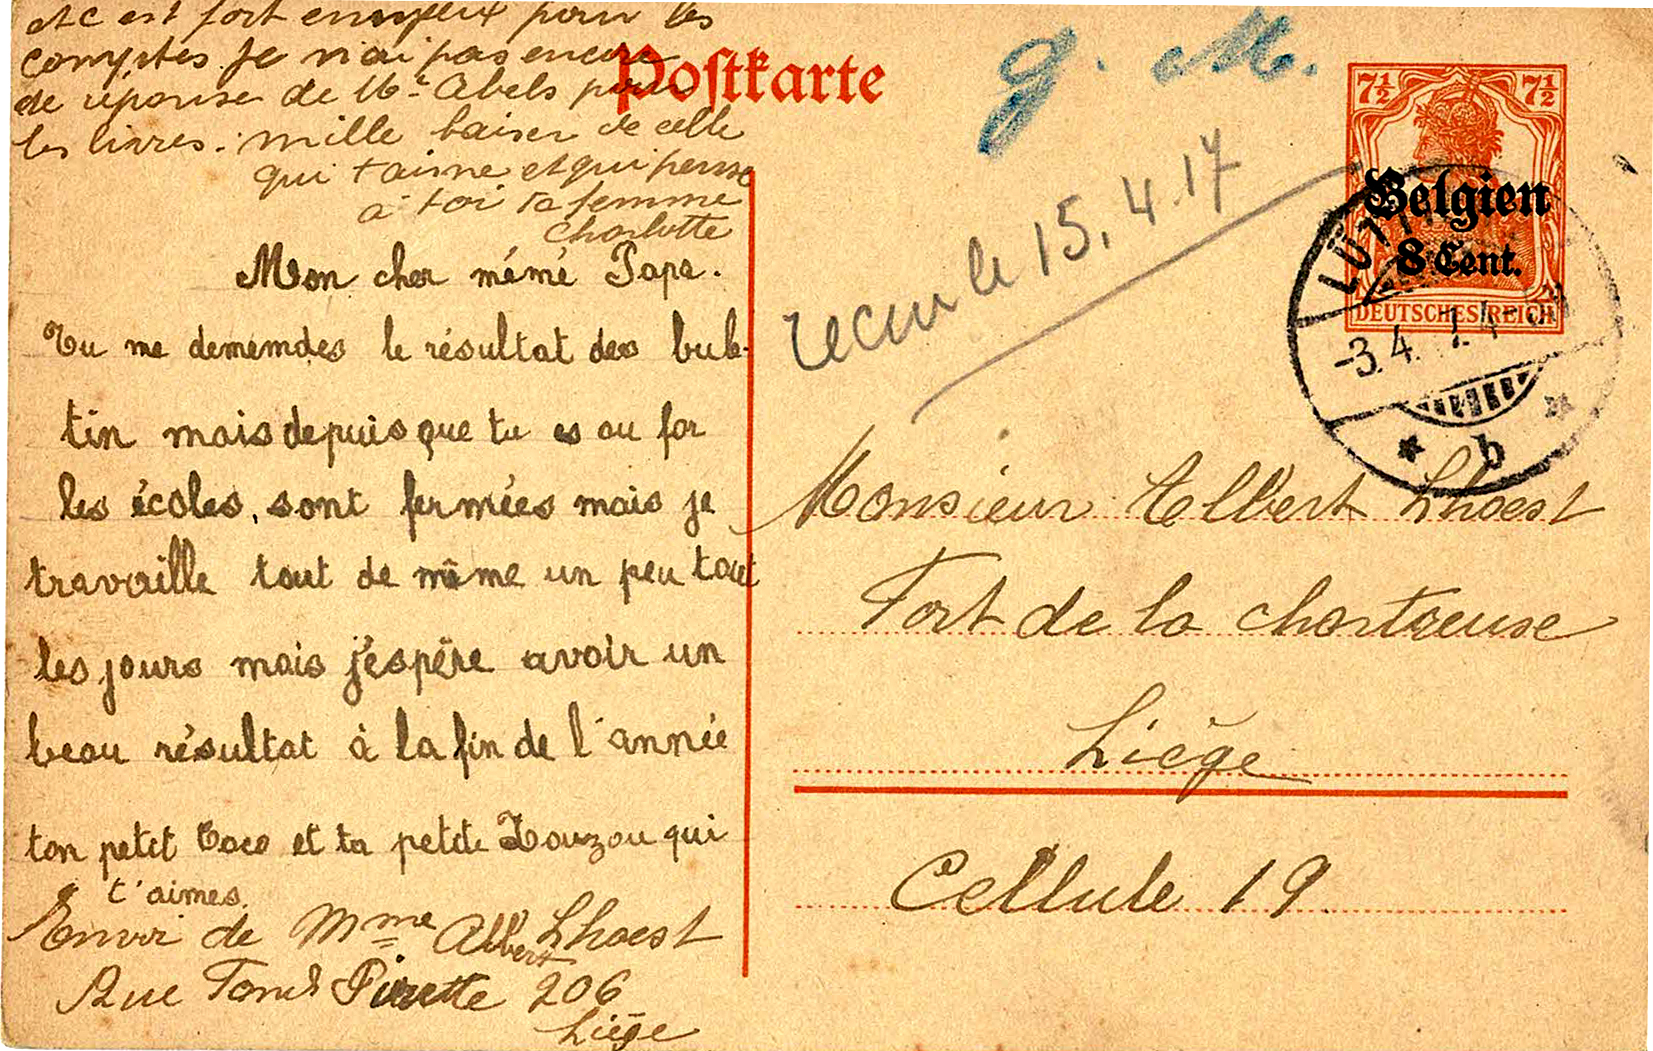 et c est fort ennuyeux pour les
comptes. je n'ai pas encore
de réponse de Mr Abels pour
les livres. mille baiser de celle
qui t'aime et qui pense
à toi ta femme
Charlotte
Mon cher mémé Papa.
Tu me dememdes le résultat des bule-
tin mais depuis que tu es au for
les écoles, sont fermées mais je
travaille tout de même un peu tout
les jours mais j'éspère avoir un
beau résultat à la fin de l'année
ton petit Coco et ta petite Zouzou qui
t'aimes.
Envoi de Mme Albert Lhoest
Rue Fond Pirette 206
Liège
Postkarte
G. M.
recu le 15.4.17
7½ 7½
Belgien
8 Cent.
DEUTSCHES REICH
LÜTTICH
-3.4. 17. 4-5N
* b *
Monsieur Albert Lhoest
Fort de la chartreuse
Liège
Cellule 19